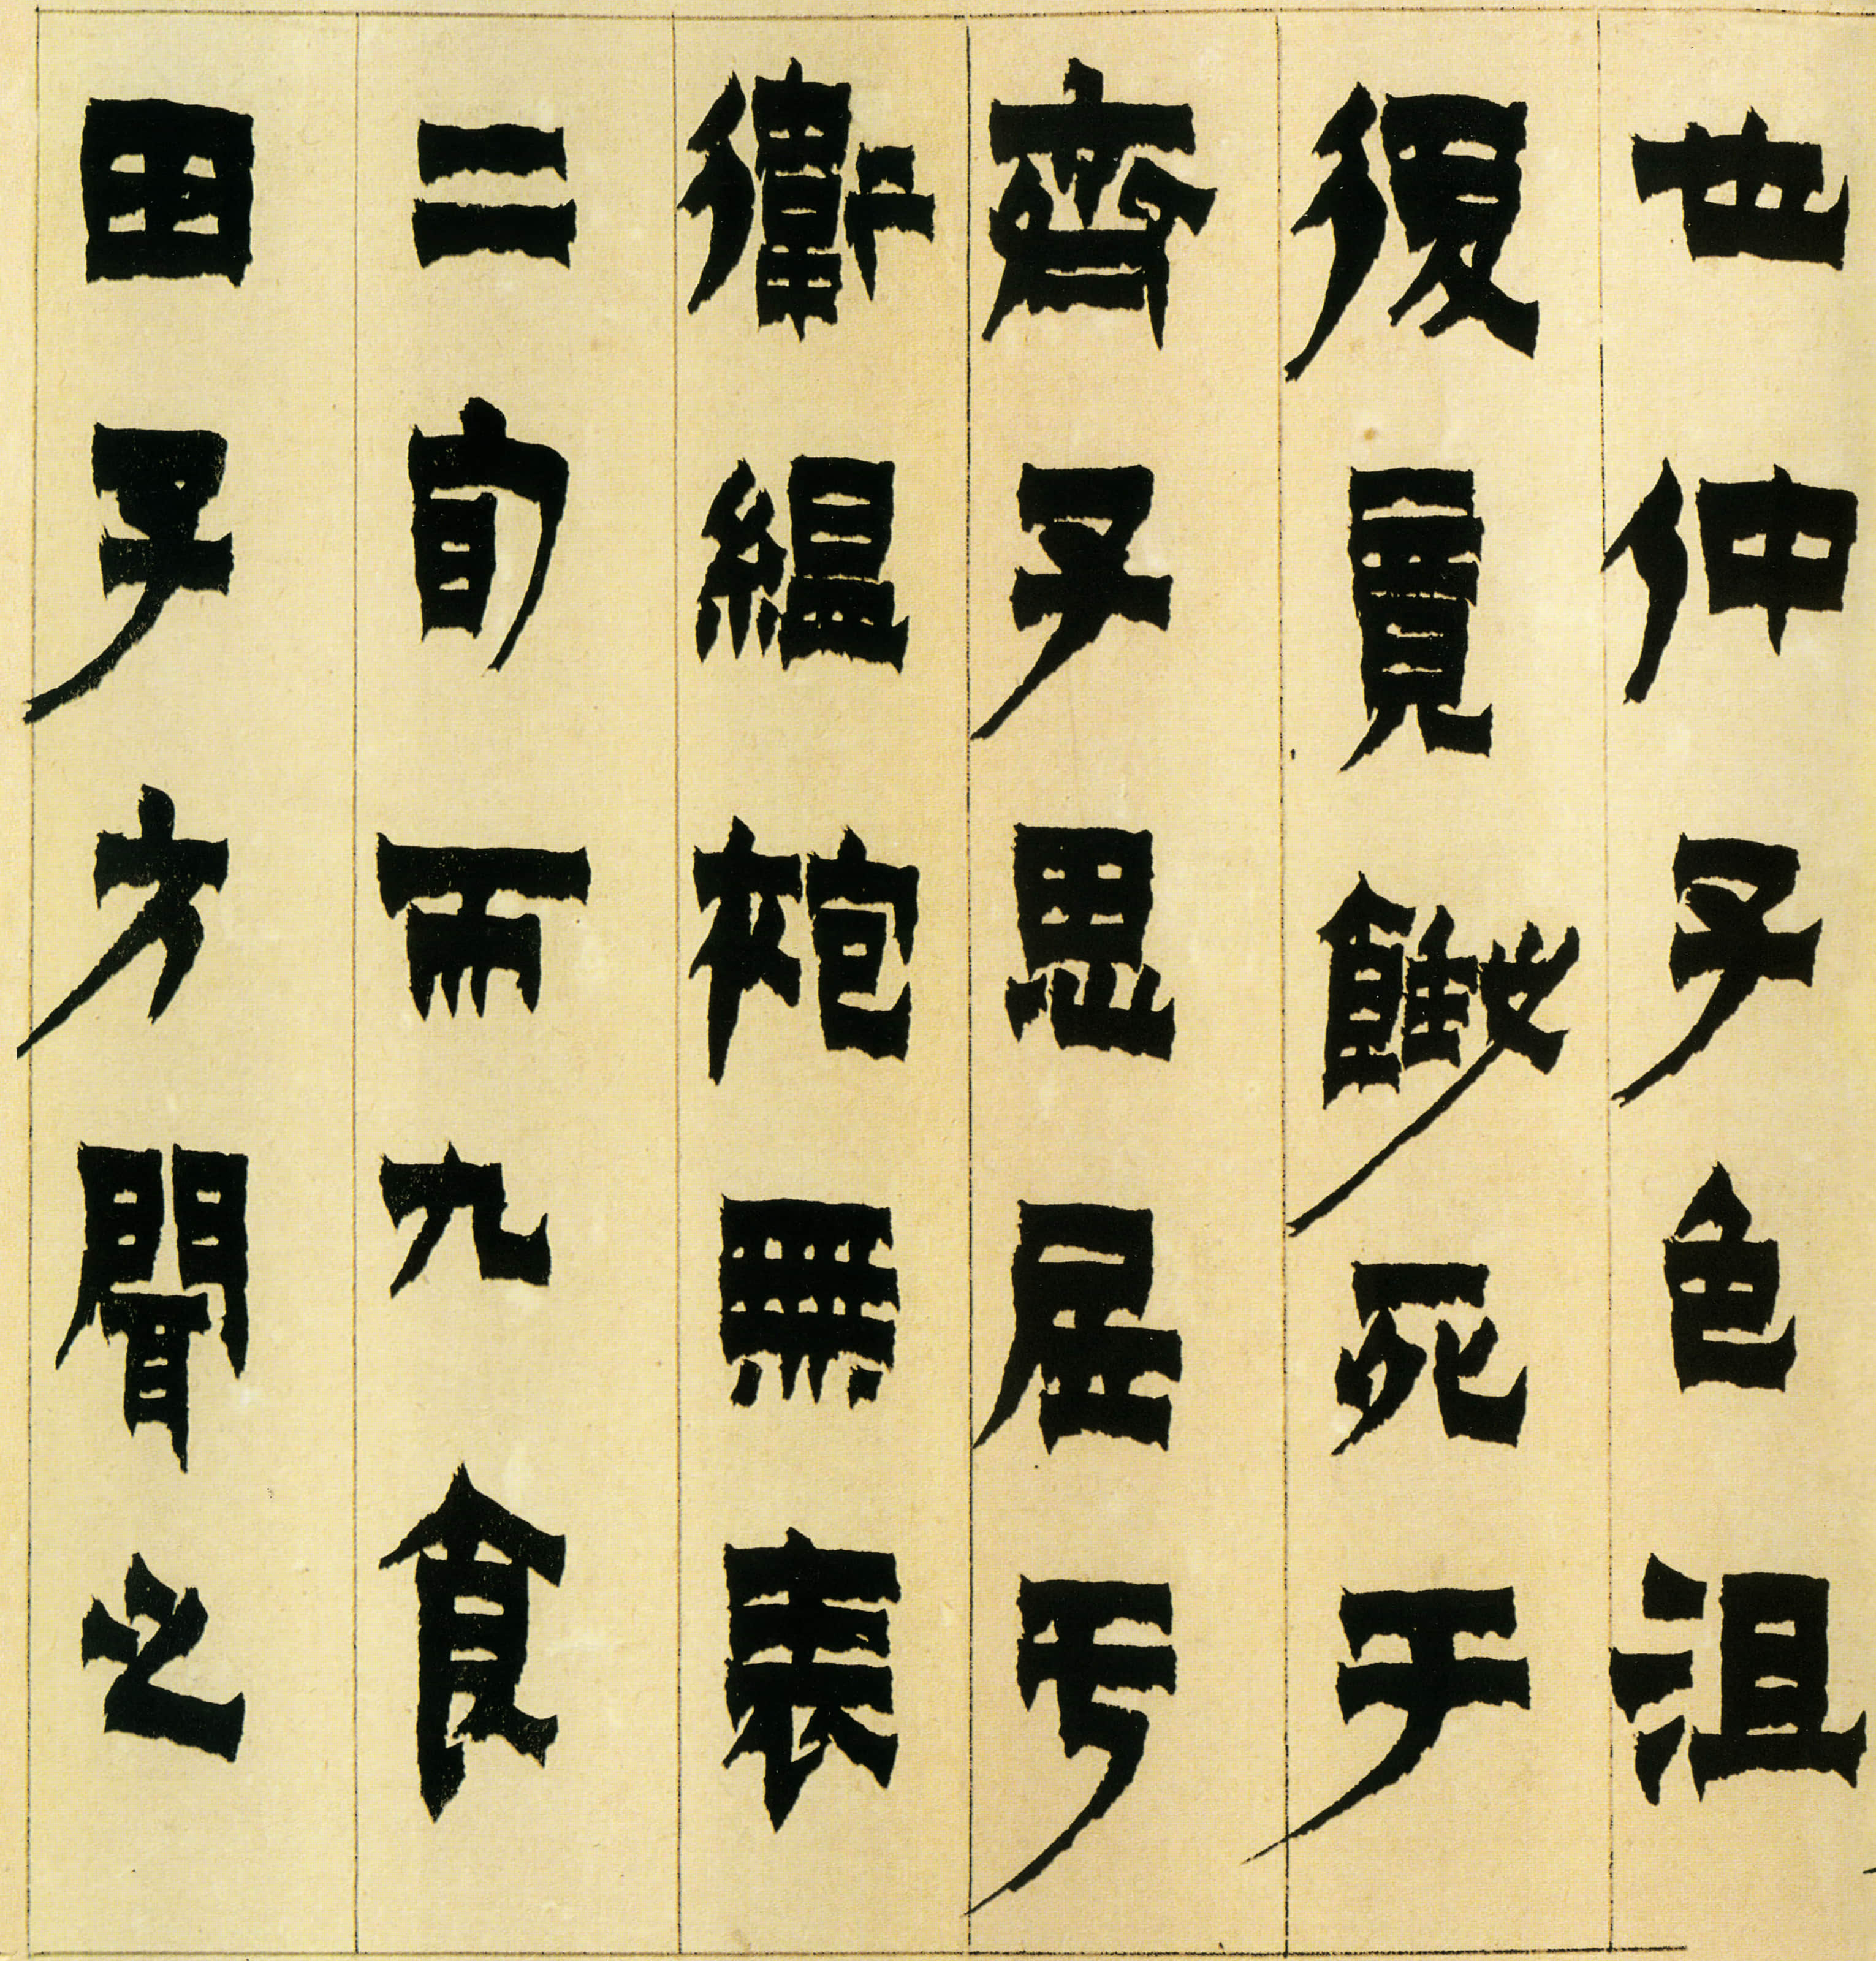 也仲子色沮
後竟餓死于
齊子思居于
衛縕袍無表
二旬而九食
田子方聞之